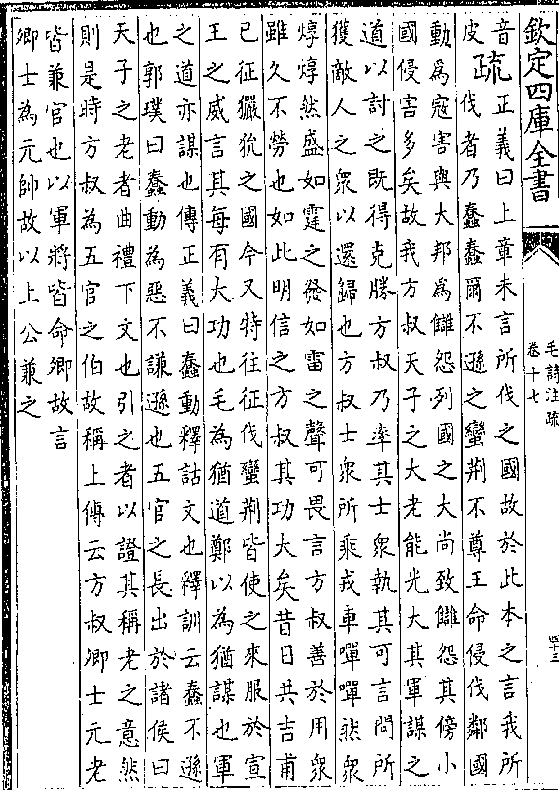 欽定四庫全書
毛詩注疏
卷十七
四十三
音
皮
疏
正義曰上章未言所伐之國故於此本之言我所
伐者乃蠢蠢爾不遜之蠻荆不尊王命侵伐鄰國
動為寇害與大邦為讎怨列國之大尚致讎怨其傍小
國侵害多矣故我方叔天子之大老能光大其軍謀之
道以討之既得克勝方叔乃率其士衆執其可言問所
獲敵人之衆以還歸也方叔士衆所乘戎車嘽嘽然衆
焞焞然盛如霆之發如雷之聲可畏言方叔善於用衆
雖久不勞也如此明信之方叔其功大矣昔日共吉甫
已征玁狁之國今又特往征伐蠻荆皆使之來服於宣
王之威言其每有大功也毛為猶道鄭以為猶謀也軍
之道亦謀也傳正義曰蠢動釋詁文也釋訓云蠢不遜
也郭璞曰蠢動為惡不謙遜也五官之長出於諸侯曰
天子之老者曲禮下文也引之者以證其稱老之意然
則是時方叔為五官之伯故稱上傳云方叔卿士元老
皆兼官也以軍將皆命卿故言
卿士為元帥故以上公兼之